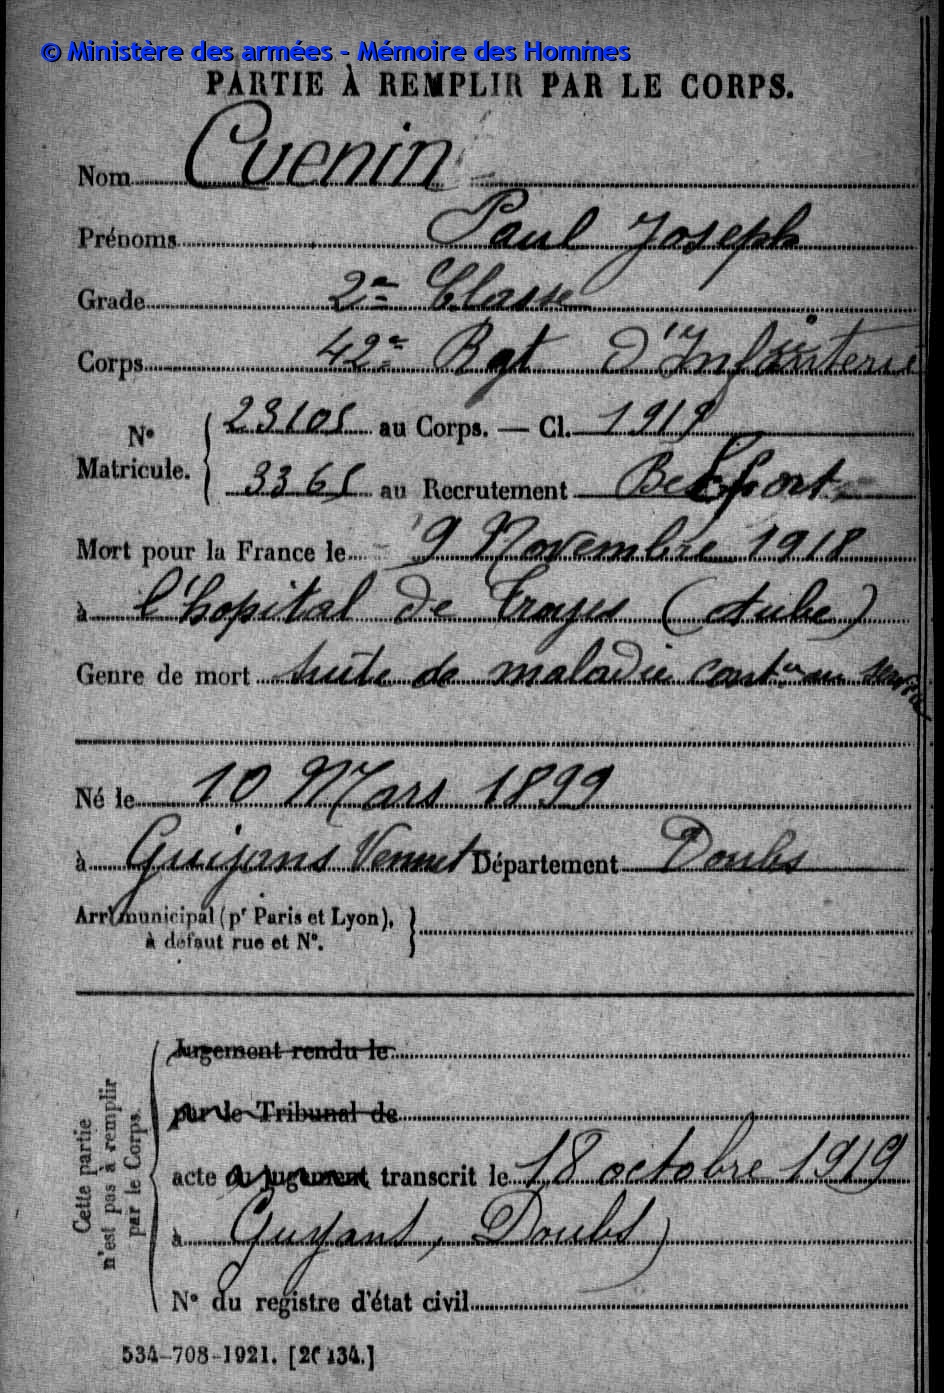 © Ministère des armées - Mémoire des Hommes
PARTIE À REMPLIR PAR LE CORPS.
Nom Cuenin
Prénoms Paul Joseph
Grade 2e Classe
Corps 42e Rgt d'Infanterie
N° Matricule. 23105 au Corps. — Cl. 1919
3365 au Recrutement Belfort
Mort pour la France le 9 Novembre 1918
à l'hopital de Troyes (Aube)
Genre de mort suite de maladie contée au service
Né le 10 Mars 1899
à Guijans Vennet Département Doubs
Arrt municipal (pr Paris et Lyon),
à défaut rue et N°.
Cette partie n'est pas à remplir par le Corps.
Jugement rendu le
par le Tribunal de
acte ou jugement transcrit le 18 octobre 1919
à Guyans, Doubs)
N° du registre d'état civil
534-708-1921. [26434.]